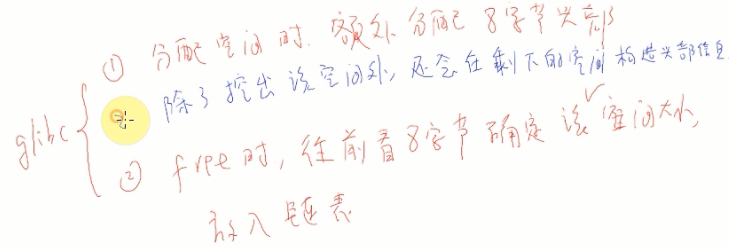 glibc
① 分配空间时. 额外分配 8字节头部
除了挖出该空间外, 还会在剩下的空间构造头部信息
② free时, 往前看8字节确定该空间大小,
放入链表